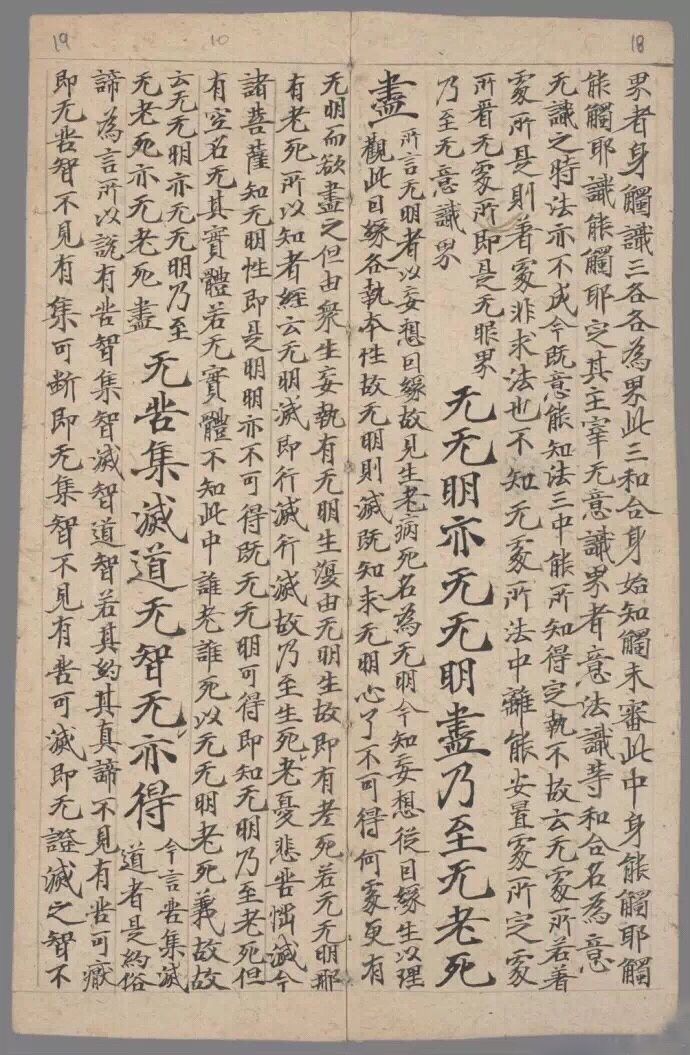 18
界者身觸識三各各為界此三和合身始知觸未審此中身能觸耶觸
能觸耶識能觸耶定其主宰无意識界者意法識等和合名為意
无識之時法亦不成今既意能知法三中能所知得定執不故云无處所若著
處所是則著處非求法也不知无處所法中離能安置處所定處
所看无處所即是无眼界
乃至无意識界
无无明亦无无明盡乃至无老死
盡
所言无明者以妄想因緣故見生老病死名為无明今知妄想從因緣生以理
觀此因緣各執本性故无明則滅既知来无明心了不可得何處更有
10
19
无明而欲盡之但由衆生妄執有无明生復由无明生故即有老死若无无明那
有老死所以知者經云无明滅即行滅行滅故乃至生死老憂悲苦惱滅今
諸菩薩知无明性即是明明亦不可得既无无明可得即知无明乃至老死但
有空名无其實體若无實體不知此中誰老誰死以无无明老死義故故
云无无明亦无无明乃至
无老死亦无老死盡
无苦集滅道无智无亦得
今言苦集滅
道者是約俗
諦為言所以說有苦智集智滅智道智若其約其真諦不見有苦可厭
即无苦智不見有集可斷即无集智不見有苦可滅即无證滅之智不